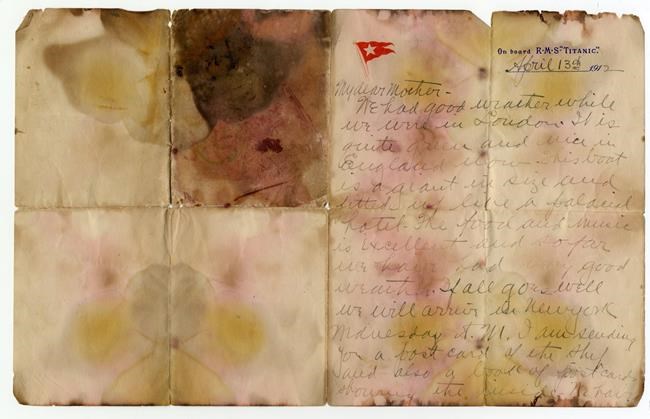 On board R·M·S "TITANIC".
April 13th 1912
My dear Mother-
We had good weather while
we were in London. It is
quite green and nice in
England now. This boat
is a giant in size and
fitted up like a palacial
hotel. The food and music
is excellent and so far
we have had very good
weather. If all goes well
we will arrive in New York
Wednesday A.M. I am sending
you a post card of the ship
and also a book of postcards
showing the inside